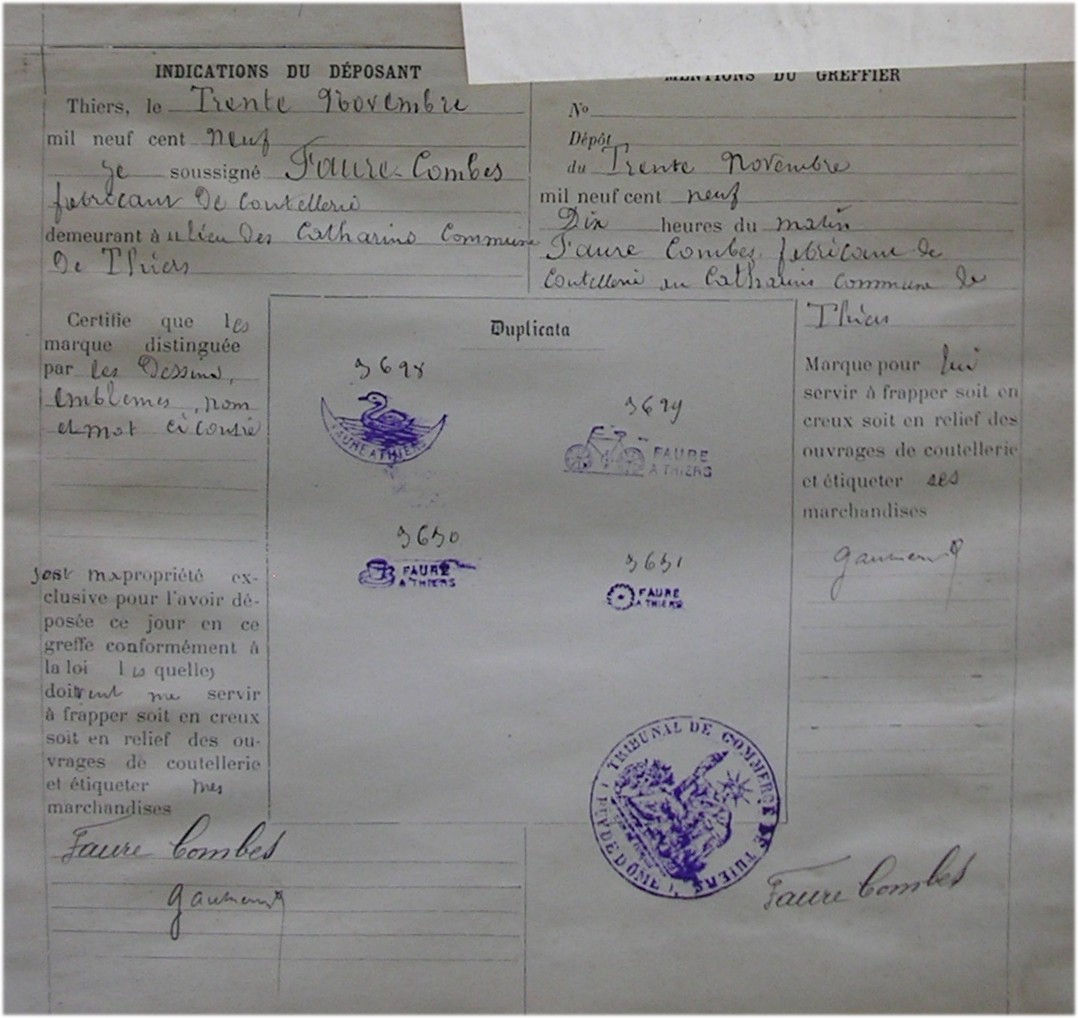 INDICATIONS DU DÉPOSANT
Thiers, le Trente Novembre
mil neuf cent neuf
je soussigné Faure-Combes
fabricant de Coutellerie
demeurant à u lieu des Catharins Commune
De Thiers
Certifie que les
marque distinguée
par les Dessins,
Emblemes, nom
et mot ci contre
sont ma propriété ex-
clusive pour l'avoir dé-
posée ce jour en ce
greffe conformément à
la loi les quelles
doivent me servir
à frapper soit en creux
soit en relief des ou-
vrages de coutellerie
et étiqueter mes
marchandises
Faure Combes
Duplicata
3698
FAURE A THIERS
FAURE
A THIERS
FAURE
A THIERS
FAURE
A THIERS
TRIBUNAL DE COMMERCE DE THIERS
PUY DE DÔME
MENTIONS DU GREFFIER
No
Dépôt
du Trente Novembre
mil neuf cent neuf
Dix heures du matin
Faure Combes fabricant de
Coutellerie au Catharins Commune de
Thiers
Marque pour lui
servir à frapper soit en
creux soit en relief des
ouvrages de coutellerie
et étiqueter ses
marchandises
Faure Combes